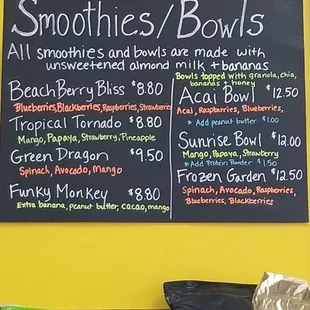 Smoothies/Bowls
All smoothies and bowls are made with
unsweetened almond milk + bananas
BeachBerry Bliss $8.80
Blueberries, Blackberries, Raspberries, Strawberries
Tropical Tornado $8.80
Mango, Papaya, Strawberry, Pineapple
Green Dragon $9.50
Spinach, Avocado, Mango
Funky Monkey $8.80
Extra banana, peanut butter, cacao, mango
Bowls topped with granola, chia,
bananas + honey
Acai Bowl $12.50
Acai, Raspberries, Blueberries,
* Add peanut butter $1.00
Sunrise Bowl $12.00
Mango, Papaya, Strawberry
* Add Protein Powder $1.50
Frozen Garden $12.50
Spinach, Avocado, Raspberries,
Blueberries, Blackberries